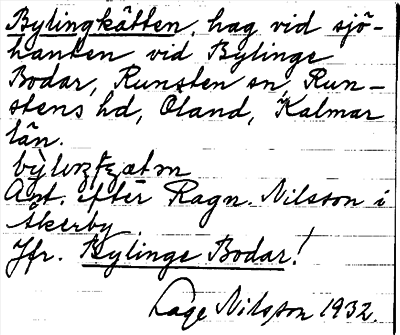 Bylingkätten, hag vid sjö-
kanten vid Bylinge
Bodar, Runsten sn, Run-
stens hd, Öland, Kalmar
län.
Ant. efter Ragn. Nilsson i
Åkerby
Jfr. Bylinge Bodar!
Lage Nilsson 1932.